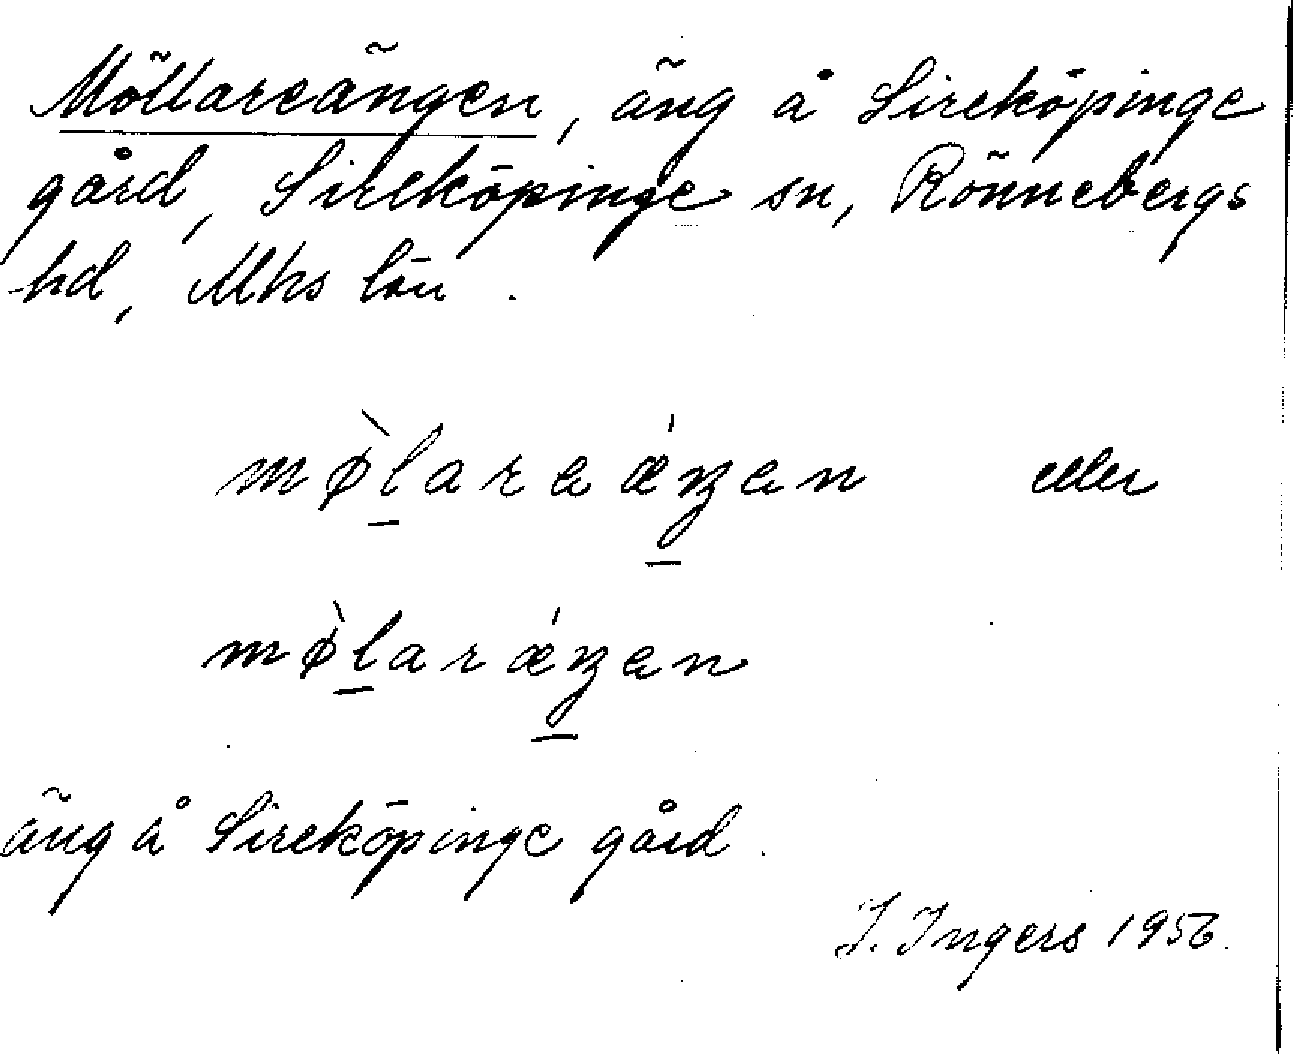 Möllareängen, äng å Sireköpinge
gård, Sireköpinge sn, Rönnebergs
hd, Mhs län.
mø̀l̠areǽŋ̠en eller
mø̀l̠arǽŋ̠en
äng å Sireköpinge gård.
I. Ingers 1956.